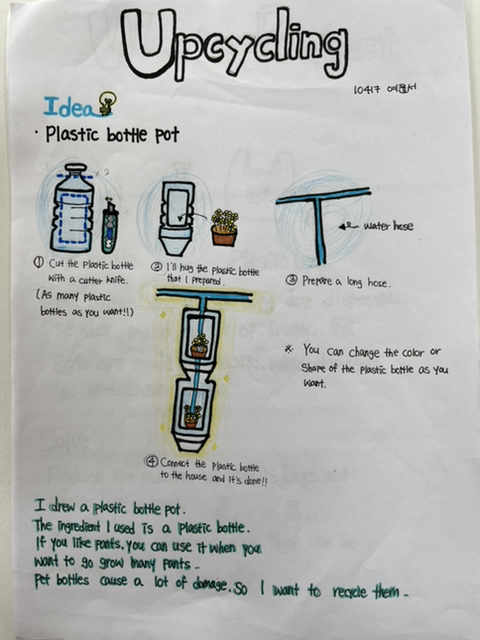 Upcycling
10417
Idea
· Plastic bottle pot
① Cut the plastic bottle
with a cutter knife.
(As many plastic
bottles as you want!!)
② I'll hug the plastic bottle
that I prepared.
water hose
③ Prepare a long hose.
※ You can change the color or
shape of the plastic bottle as you
want.
④ Connect the plastic bottle
to the house and it's done!!
I drew a plastic bottle pot.
The ingredient I used is a plastic bottle.
If you like pants, you can use it when you
want to go grow many pants..
Pet bottles cause a lot of damage. So I want to recycle them..